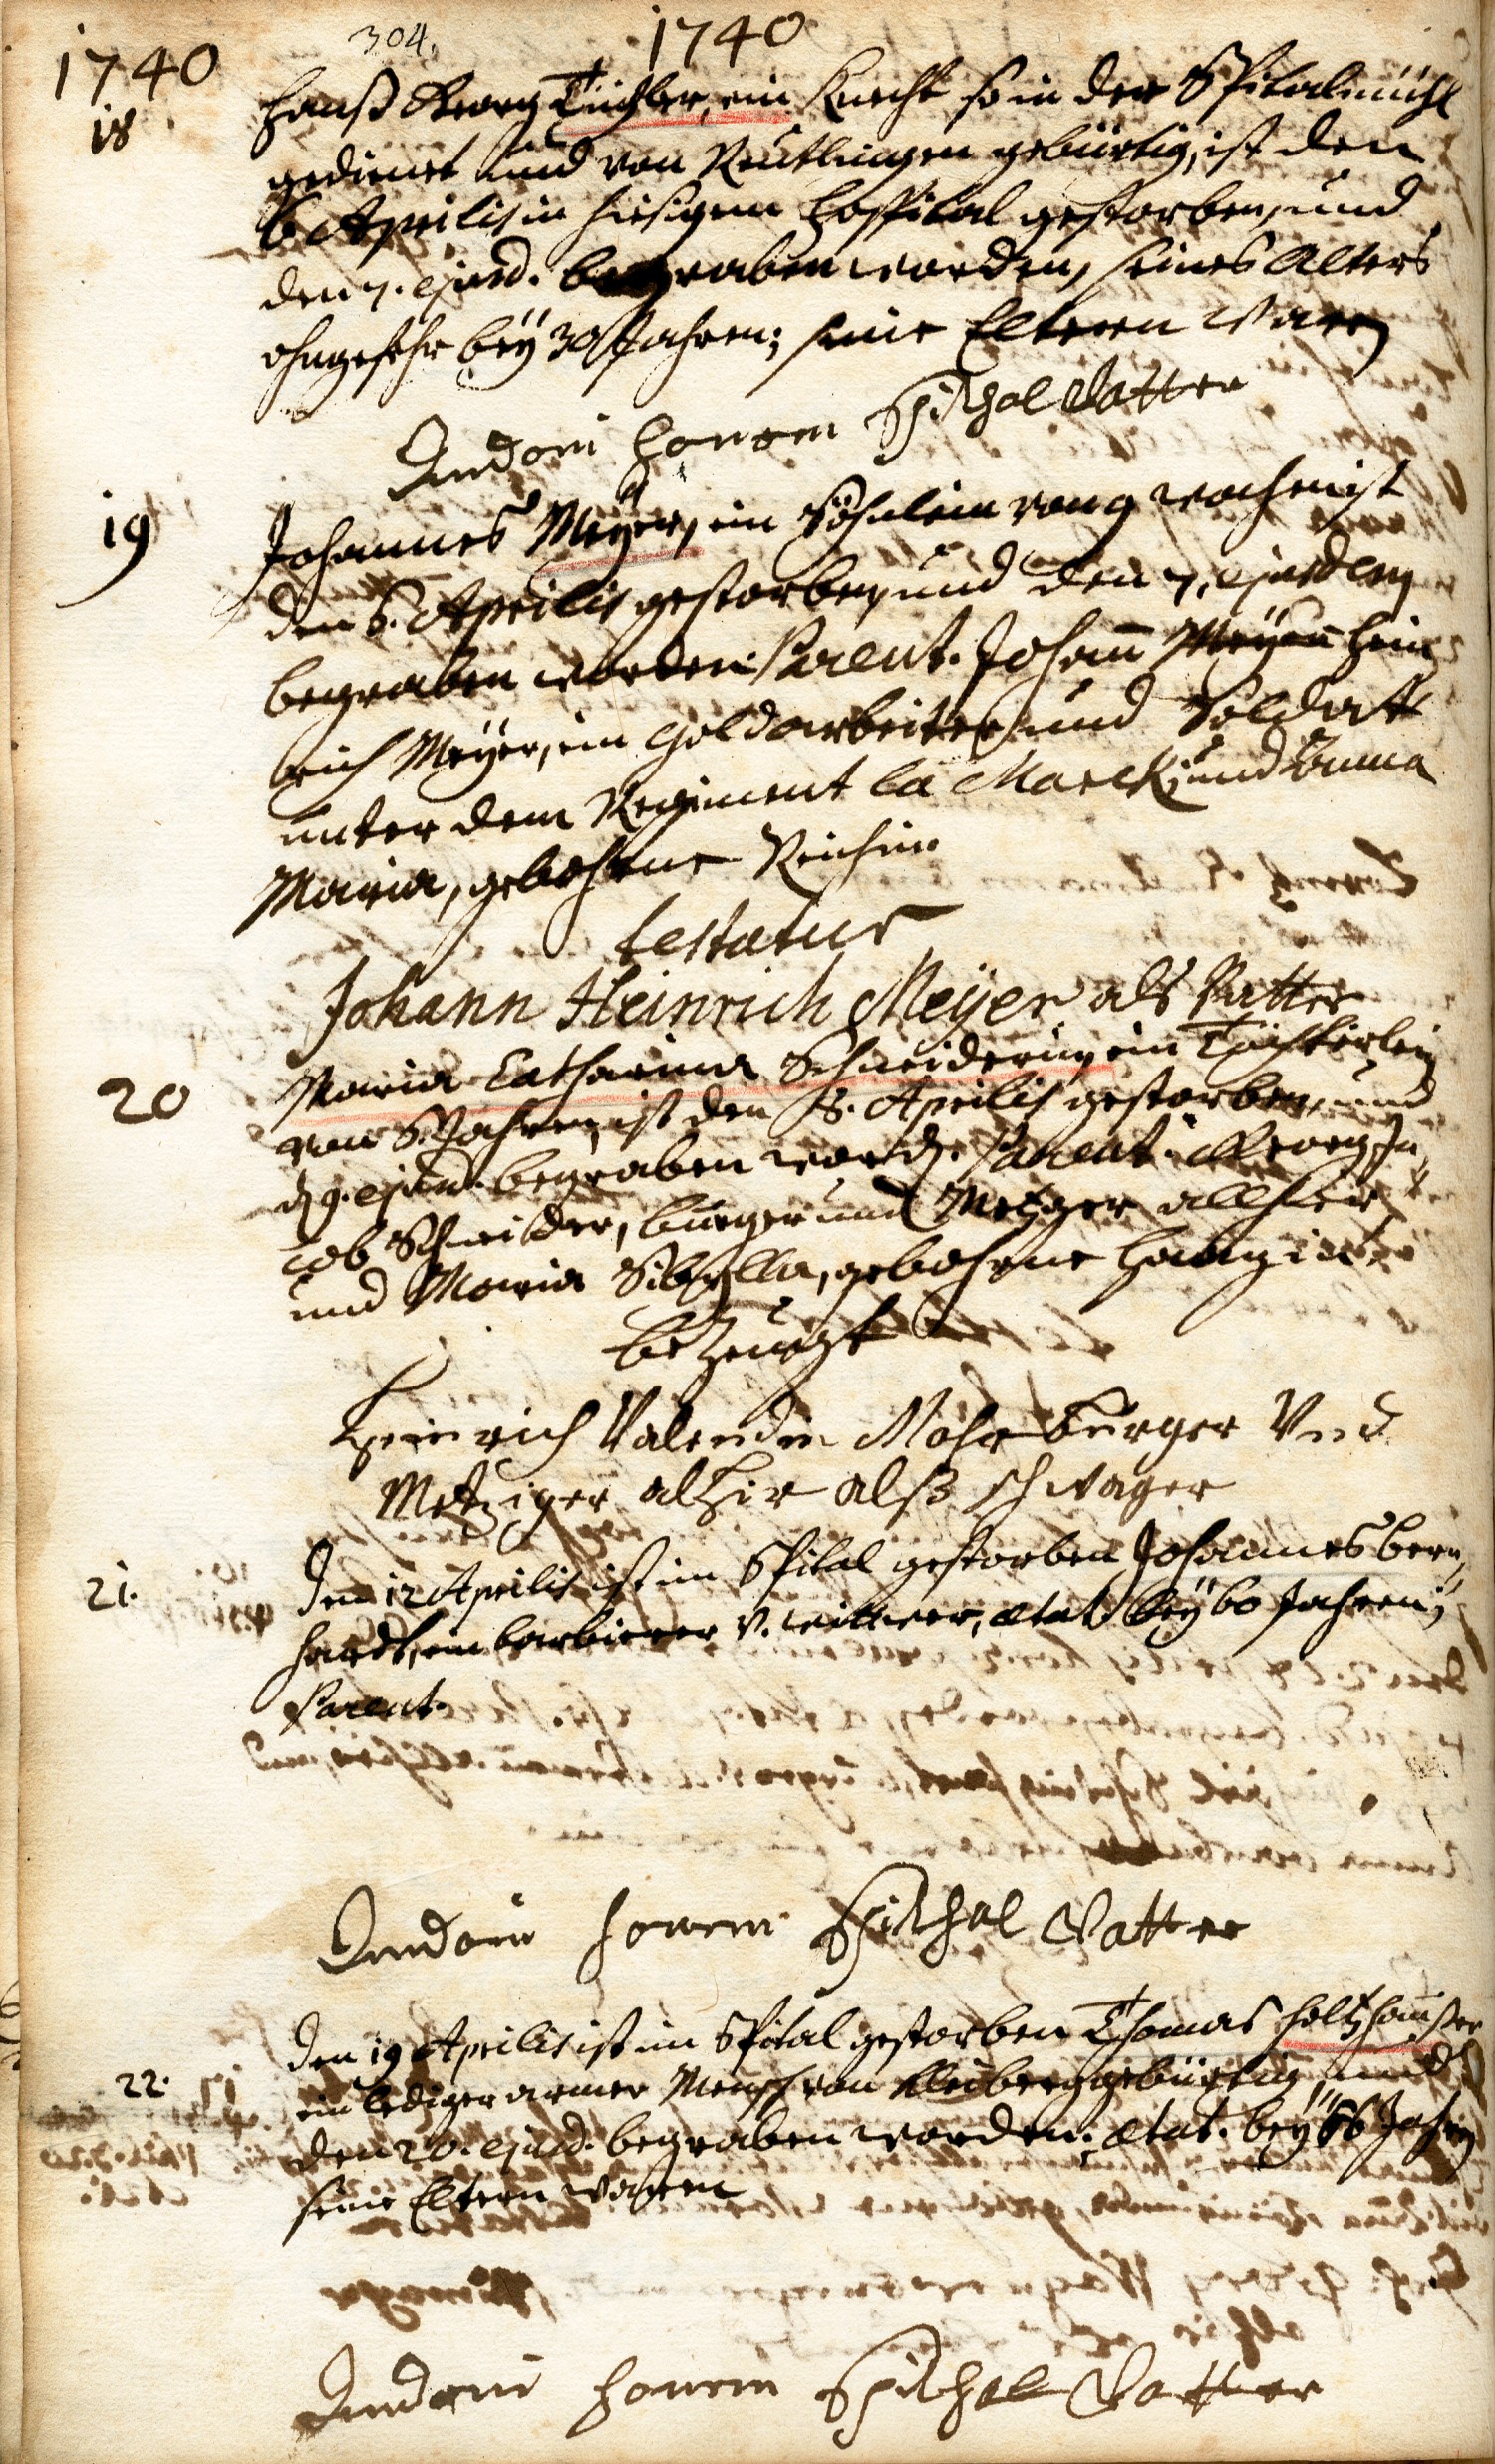 304.
1740
1740
18
Hanß Georg Tüchler, ein Knecht so in der Spitalmühl
gedienet und von Reutlingen gebürtig, ist den
6 Aprilis in hiesigem Hospital gestorben, und
den 7. ejusd. begraben worden, seines Alters
ohngefehr bey 30 Jahren; seine Eltern waren
Spithal Vatter
19
Johannes Meyer, ein Söhnlein von 9 wochen ist
den 6. Aprilis gestorben, und den 7. ejusdem
begraben worden. Parent. Johann Hein
rich Meyer, ein Goldarbeiter und Soldat
unter dem Regiment la Marck, und Anna
Maria, gebohrne Reichin
testatur
Johann Heinrich Meyer als Vatter
20
Maria Catharina Schneiderin, ein Töchterlein
von 6. Jahren, ist den 8. Aprilis gestorben, und
d. 9. ejusd. begraben word. Parent. Georg Ja
cob Schneider, burger und Metzger allhier
und Maria Sibylla, gebohrne Haugin
bezeugt
Heinrich Valendin Mohr burger Vnd
Metziger alhir alß schwager
21.
Den 12 Aprilis ist im Spital gestorben Johannes Bern,
hardt, ein barbierer v. wittwer, ætat. bey 60 Jahren;
Parent.
Spithal Vatter
22.
Den 19 Aprilis ist im Spital gestorben Thomas Holtzhaußer
ein lediger armer Mensch von gebürtig und
den 20. ejusd. begraben worden. ætat. bey 66 Jahren
seine Eltern waren
Spithal Vatter